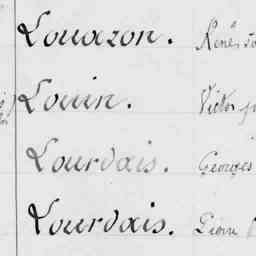 Louazon. René
Louin. Victor
Lourdais. Georges
Lourdais. Pierre